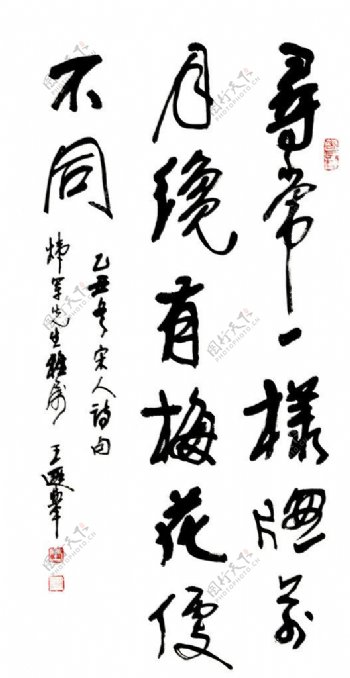 尋常一樣窗前
月纔有梅花便
不同
乙丑冬宋人詩句
煒军先生雅属 王遐舉